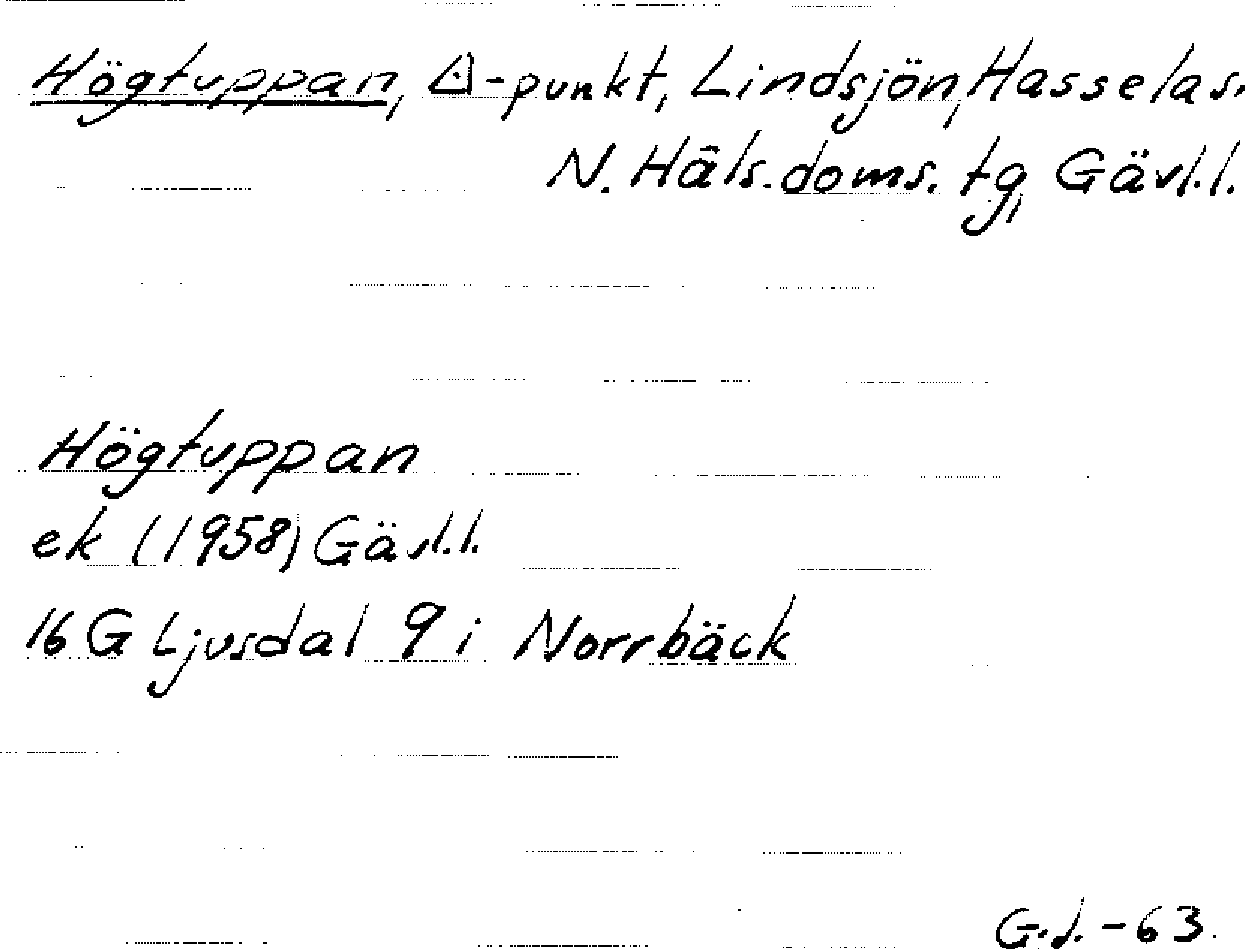 Högtuppan, △-punkt, Lindsjön, Hassela s.
N. Häls. doms. tg, Gävl.l.
Högtuppan
ek (1958) Gävl.l.
16 G Ljusdal 9 i Norrbäck
G.d. -63.